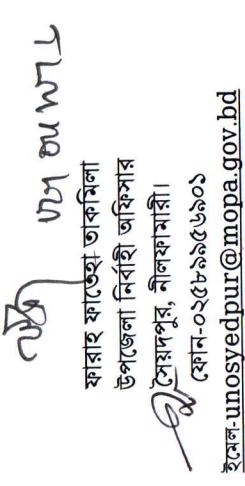 ফারাহ ফাতেহা তাকমিলা
উপজেলা নির্বাহী অফিসার
সৈয়দপুর, নীলফামারী।
ফোন-০২৫৮৯৯৫৬৯০১
ইমেল-unosyedpur@mopa.gov.bd